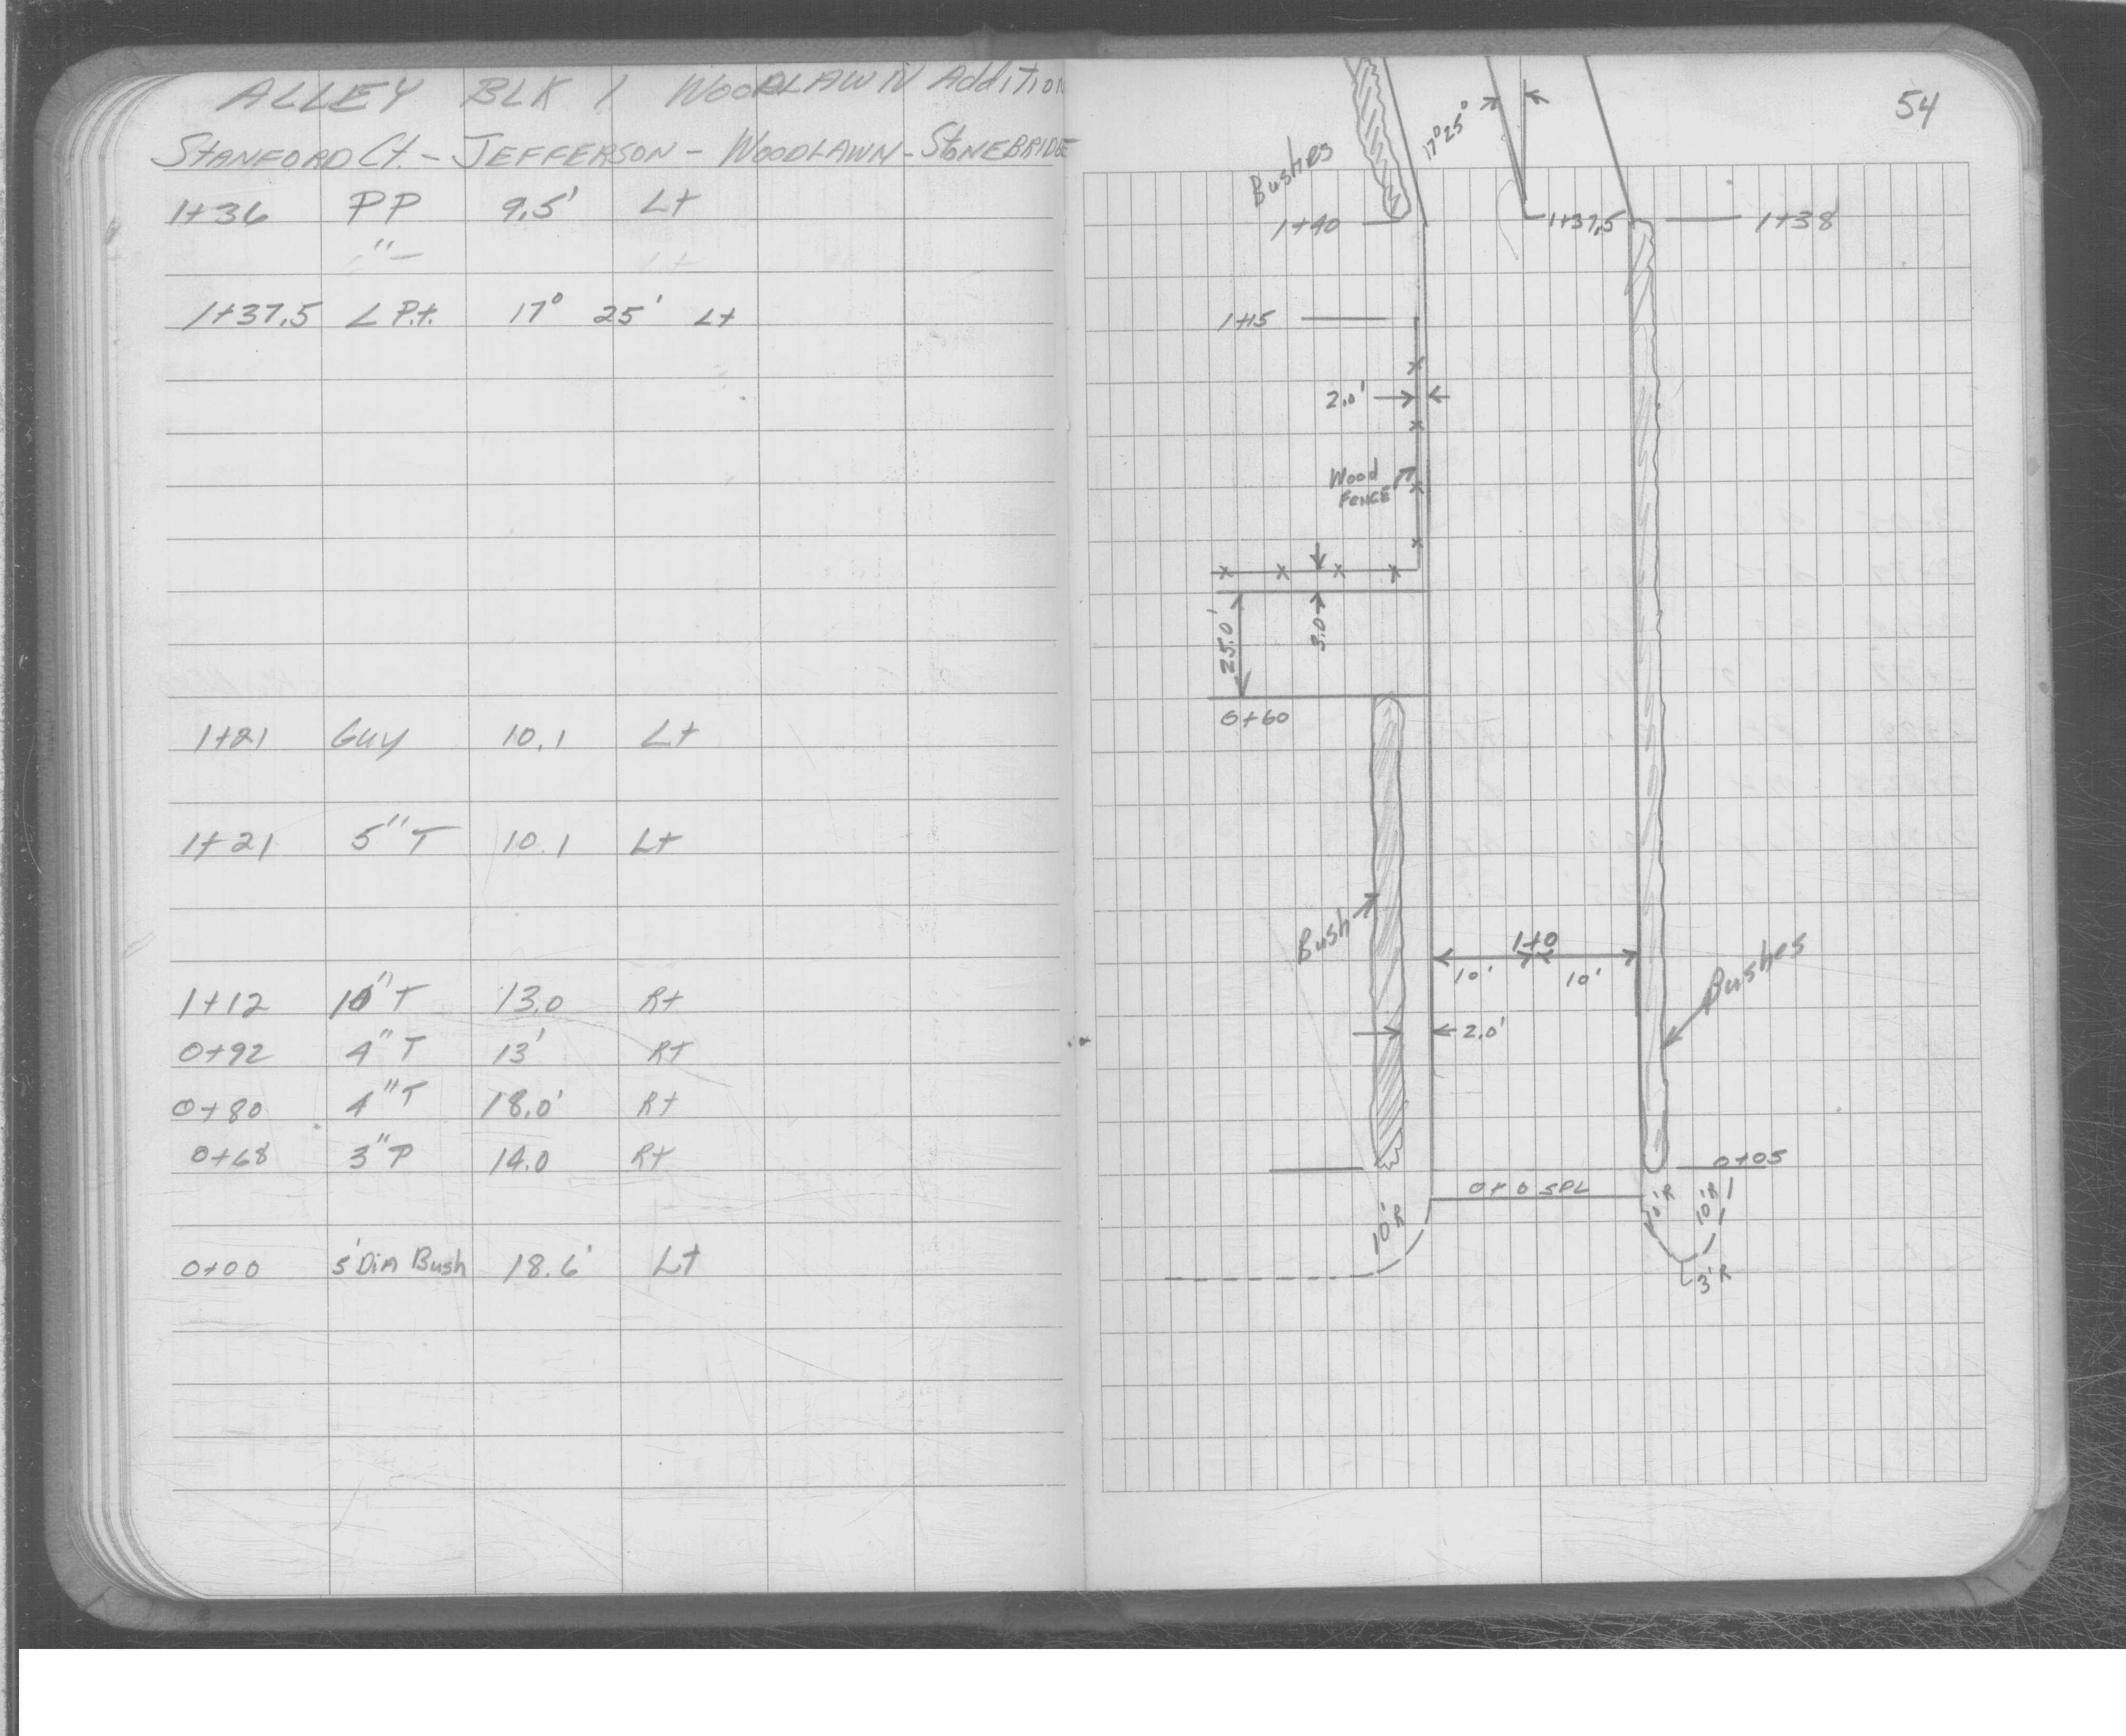 ALLEY BLK 1 WOODLAWN Addition
STANFORD Ct. - JEFFERSON - WOODLAWN - STONEBRIDGE
1+36 PP 9.5' Lt
1+37.5 ∠ Pt. 17° 25' Lt
1+21 Guy 10.1 Lt
1+21 5" T 10.1 Lt
1+12 10" T 13.0 Rt
0+92 4" T 13' Rt
0+80 4" T 18.0' Rt
0+68 3" P 14.0 Rt
0+00 5' Dia Bush 18.6' Lt
54
17°25'
Bushes
1+40
1+37.5
1+38
1+15
2.0'
Wood
FENCE
25.0'
3.0'
0+60
Bush
1+0
10' 10'
Bushes
2.0'
0+05
0+0 SPL
10'R
10'R
10'R
3'R